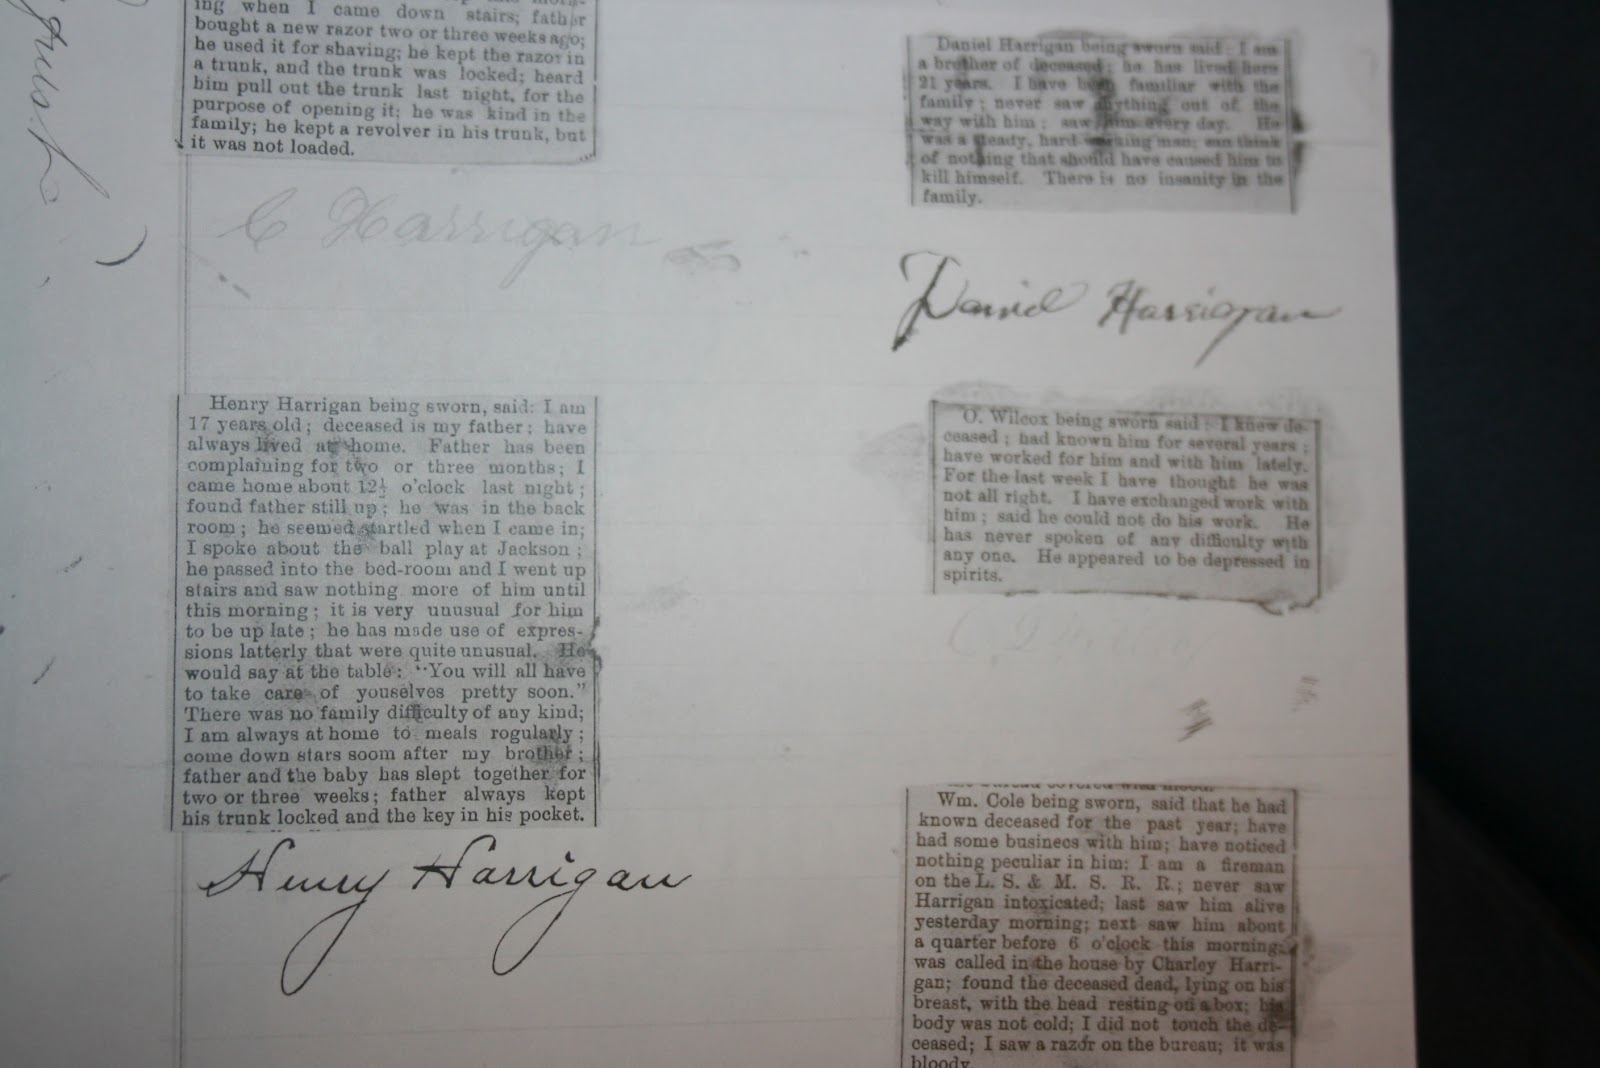 ing when I came down stairs; father
bought a new razor two or three weeks ago;
he used it for shaving; he kept the razor in
a trunk, and the trunk was locked; heard
him pull out the trunk last night, for the
purpose of opening it; he was kind in the
family; he kept a revolver in his trunk, but
it was not loaded.
C Harrigan
Henry Harrigan being sworn, said: I am
17 years old; deceased is my father; have
always lived at home. Father has been
complaining for two or three months; I
came home about 12½ o'clock last night;
found father still up; he was in the back
room; he seemed startled when I came in;
I spoke about the ball play at Jackson;
he passed into the bed-room and I went up
stairs and saw nothing more of him until
this morning; it is very unusual for him
to be up late; he has made use of expres-
sions latterly that were quite unusual. He
would say at the table: "You will all have
to take care of youselves pretty soon."
There was no family difficulty of any kind;
I am always at home to meals rogularly;
come down stars soom after my brother;
father and the baby has slept together for
two or three weeks; father always kept
his trunk locked and the key in his pocket.
Henry Harrigan
Daniel Harrigan being sworn said: I am
a brother of deceased; he has lived here
21 years. I have been familiar with the
family; never saw anything out of the
way with him; saw him every day. He
was a steady, hard working man; can think
of nothing that should have caused him to
kill himself. There is no insanity in the
family.
Daniel Harrigan
O. Wilcox being sworn said: I knew de-
ceased; had known him for several years;
have worked for him and with him lately.
For the last week I have thought he was
not all right. I have exchanged work with
him; said he could not do his work. He
has never spoken of any difficulty with
any one. He appeared to be depressed in
spirits.
Wm. Cole being sworn, said that he had
known deceased for the past year; have
had some busineсs with him; have noticed
nothing peculiar in him: I am a fireman
on the L. S. & M. S. R. R.; never saw
Harrigan intoxicated; last saw him alive
yesterday morning; next saw him about
a quarter before 6 o'clock this morning;
was called in the house by Charley Harri-
gan; found the deceased dead, lying on his
breast, with the head resting on a box; his
body was not cold; I did not touch the de-
ceased; I saw a razor on the bureau; it was
bloody